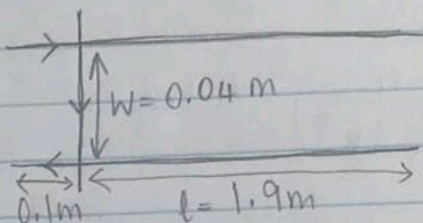 W = 0.04 m
0.1m
l = 1.9m